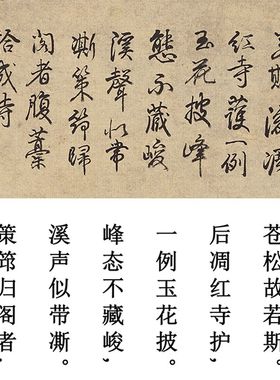 若斯後凋
紅寺護一例
玉花披峰
態不藏峻
溪聲似帶
澌策筇歸
閣者腹藁
詩
苍松故若斯。
后凋红寺护,
一例玉花披。
峰态不藏峻,
溪声似带澌。
策筇归阁者,